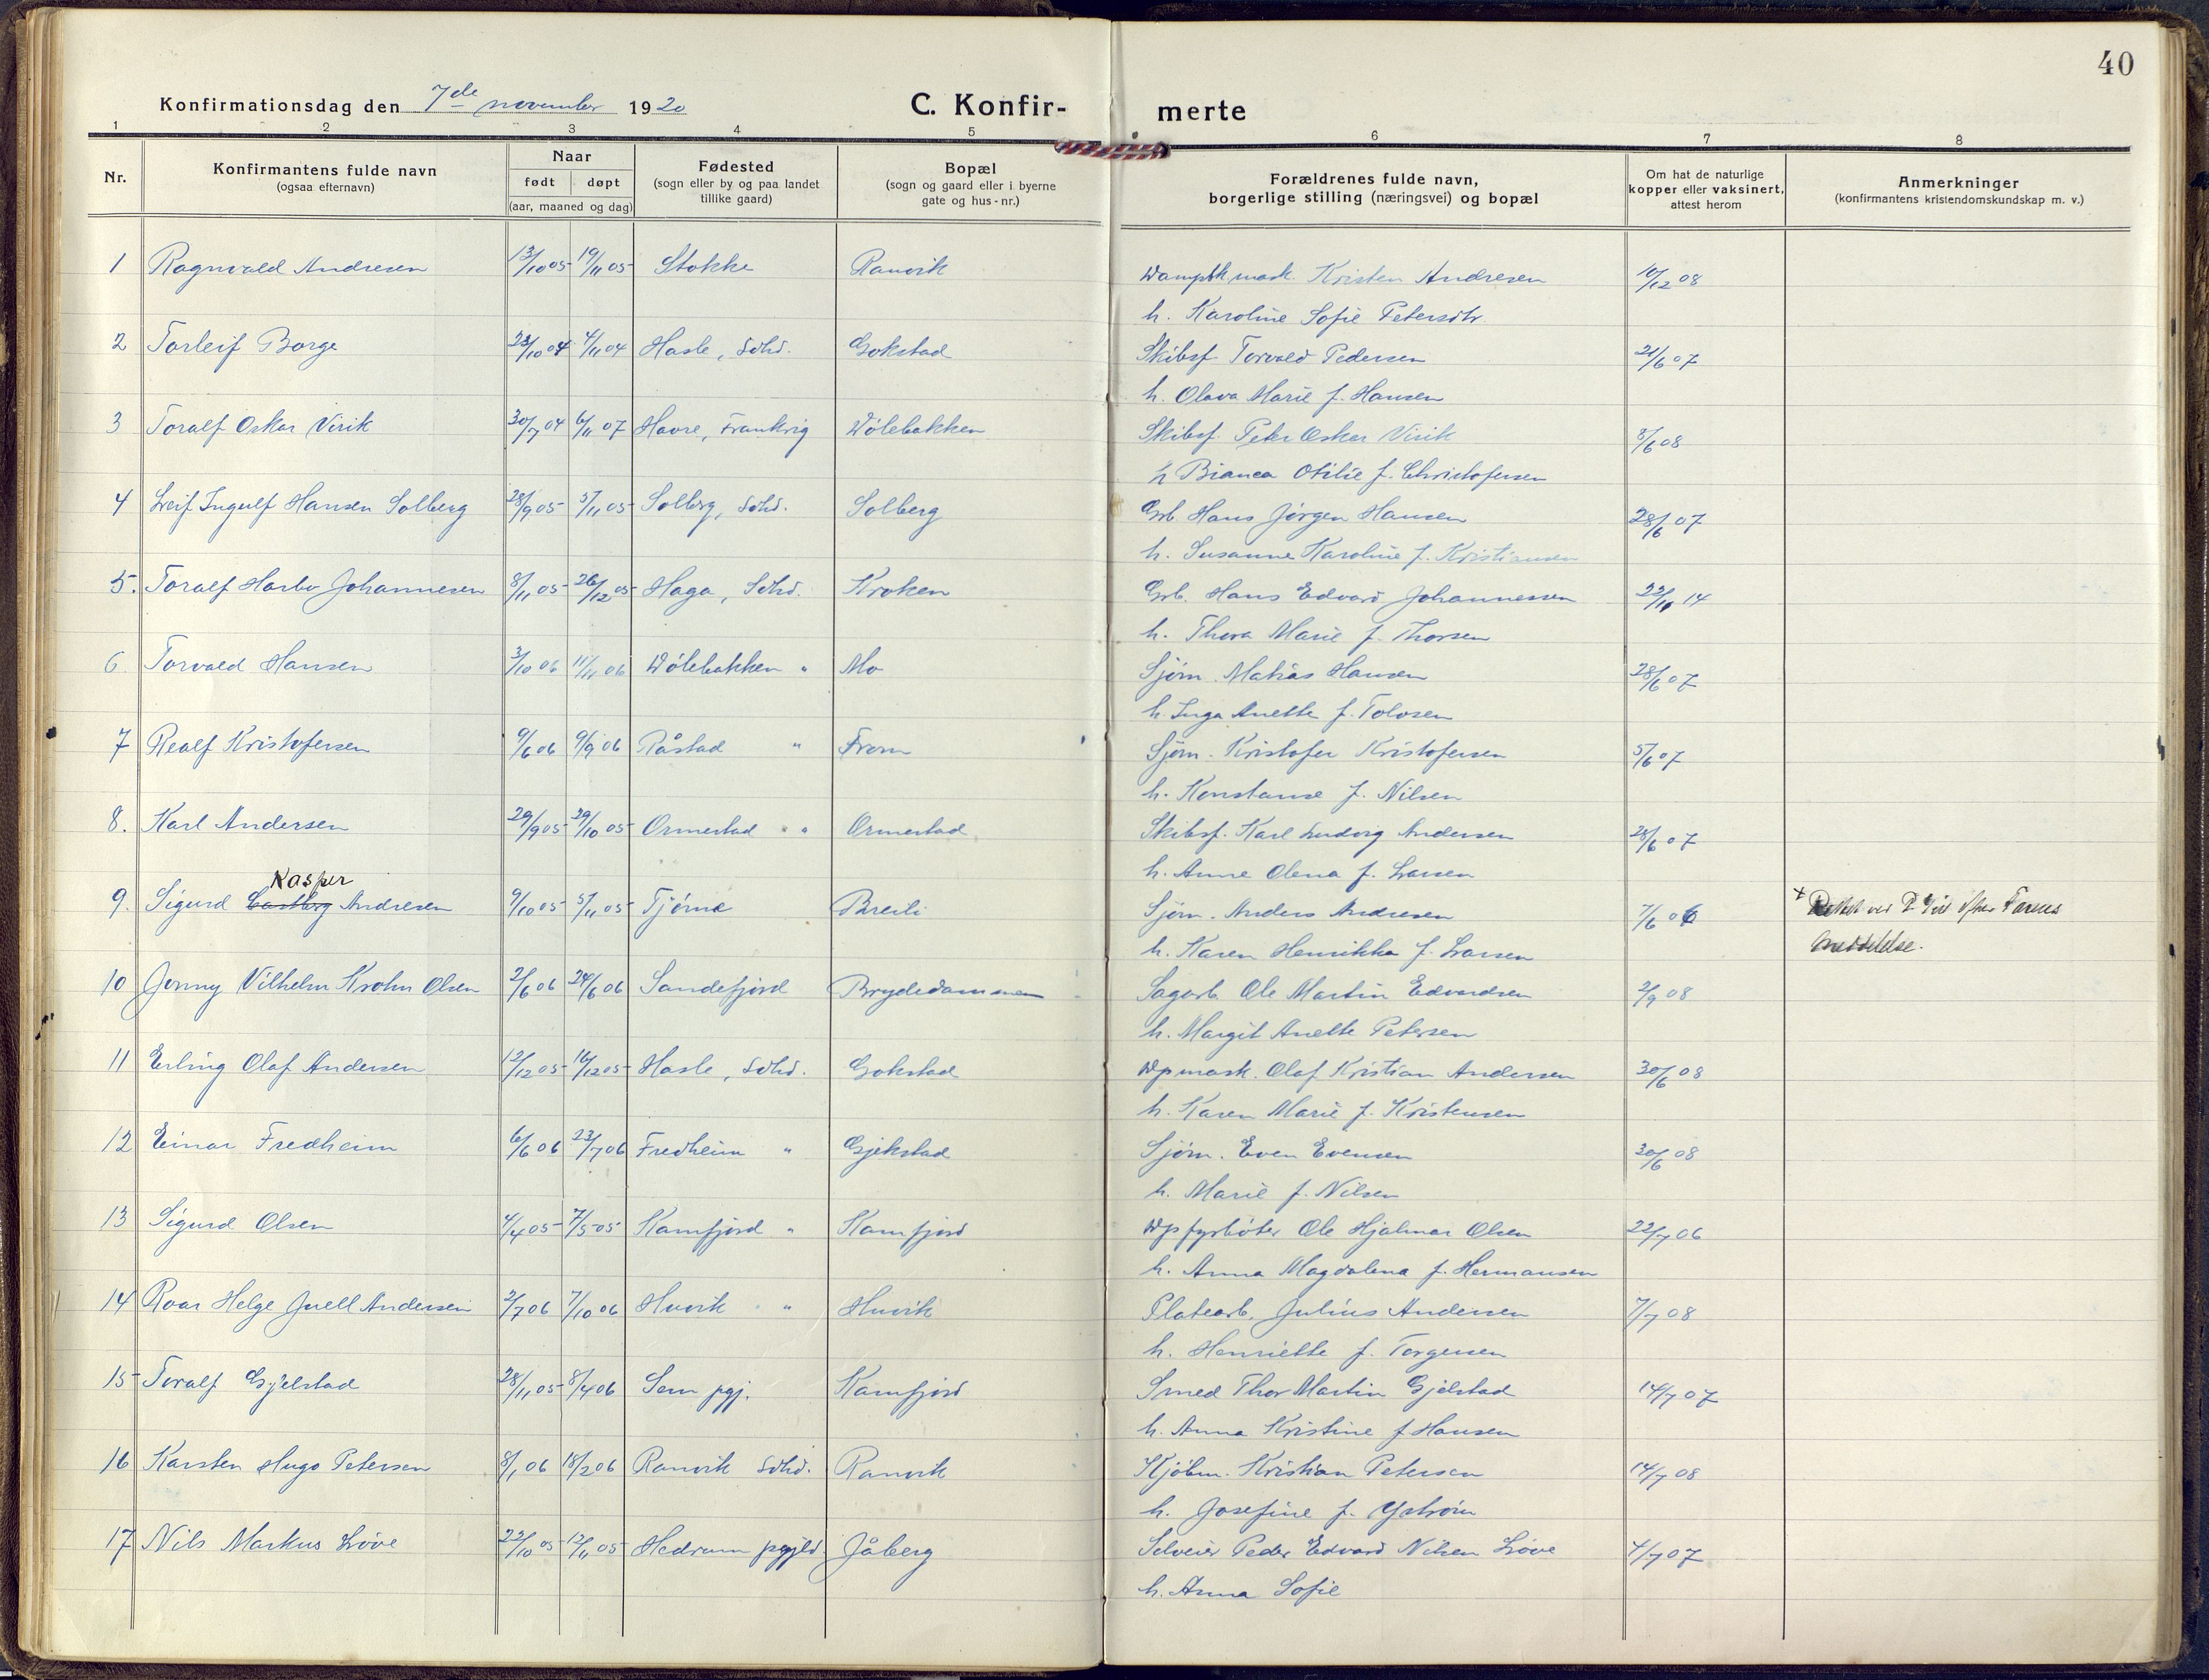 40
Konfirmationsdag den 7de november 1920
C. Konfir-
merte
1 2 3 4 5 6 7 8
Nr.
Konfirmantens fulde navn
(ogsaa efternavn)
Naar
født døpt
(aar, maaned og dag)
Fødested
(sogn eller by og paa landet
tillike gaard)
Bopæl
(sogn og gaard eller i byerne
gate og hus-nr.)
Forældrenes fulde navn,
borgerlige stilling (næringsvei) og bopæl
Om hat de naturlige
kopper eller vaksinert,
attest herom
Anmerkninger
(konfirmantens kristendomskundskap m. v.)
1 Ragnvald Andresen 13/10 05 19/11 05 Stokke Ranvik Dampsk.mask. Kristen Andresen 10/12 08
h. Karoline Sofie Petersdtr.
2 Torleif Borge 23/10 04 4/11 04 Hasle, Sdhd. Gokstad Skibsf. Torvald Pedersen 21/6 07
h. Olava Marie f. Hansen
3 Toralf Oskar Virik 30/7 04 6/11 07 Havre, Frankrig Dølebakken Skibsf. Peter Oskar Virik 8/6 08
h Bianca Otilie f. Christofersen
4 Leif Ingulf Hansen Solberg 28/9 05 5/11 05 Solberg, Sdhd. Solberg Grb. Hans Jørgen Hansen 28/6 07
h. Susanne Karoline f. Kristiansen
5. Toralf Harbo Johannesen 8/11 05 26/12 05 Haga, Sdhd. Kroken Grb. Hans Edvard Johannessen 22/11 14
h. Thora Marie f. Thorsen
6. Torvald Hansen 3/10 06 11/11 06 Dølebakken " Mo Sjøm. Matias Hansen 28/6 07
h. Inga Anette f. Tolvsen
7 Realf Kristofersen 9/6 06 9/9 06 Råstad " From Sjøm. Kristofer Kristofersen 5/6 07
h. Konstanse f. Nilsen
8. Karl Andersen 29/9 05 29/10 05 Ormestad " Ormestad Skibsf. Karl Ludvig Andersen 28/6 07
h. Anne Olena f. Larsen
Kasper
9. Sigurd Carlberg Andresen 9/10 05 5/11 05 Tjømø Breili Sjøm. Anders Andresen 7/6 06 x Rettet ved efter Farens
h. Karen Henrikke f. Larsen meddelelse.
10 Jonny Vilhelm Krohn Olsen 2/6 06 24/6 06 Sandefjord Brydedammen Sagarb. Ole Martin Edvardsen 2/9 08
h. Margit Anette Petersen
11 Erling Olaf Andersen 12/12 05 16/12 05 Hasle, Sdhd. Gokstad Dpmask. Olaf Kristian Andersen 30/6 08
h. Karen Marie f. Kristensen
12 Einar Fredheim 6/6 06 23/7 06 Fredheim " Gjekstad Sjøm. Even Evensen 30/6 08
h. Marie f. Nilsen
13 Sigurd Olsen 4/4 05 7/5 05 Kamfjord " Kamfjord Dpfyrbøter Ole Hjalmar Olsen 22/7 06
h. Anna Magdalena f. Hermansen
14 Roar Helge Juell Andersen 2/7 06 7/10 06 Huvik " Huvik Platearb. Julius Andersen 7/7 08
h. Henriette f. Torgersen
15 Toralf Gjelstad 28/11 05 8/4 06 Sem pgj. Kamfjord Smed Thor Martin Gjelstad 14/7 07
h. Anna Kristine f Hansen
16 Karsten Hugo Petersen 8/1 06 18/2 06 Ranvik Sdhd. Ranvik Kjøbm. Kristian Petersen 14/7 08
h. Josefine f. Ystrøm
17 Nils Markus Løve 22/10 05 12/11 05 Hedrum pgjld Jåberg Selveier Peder Edvard Nilsen Løve 4/7 07
h. Anna Sofie